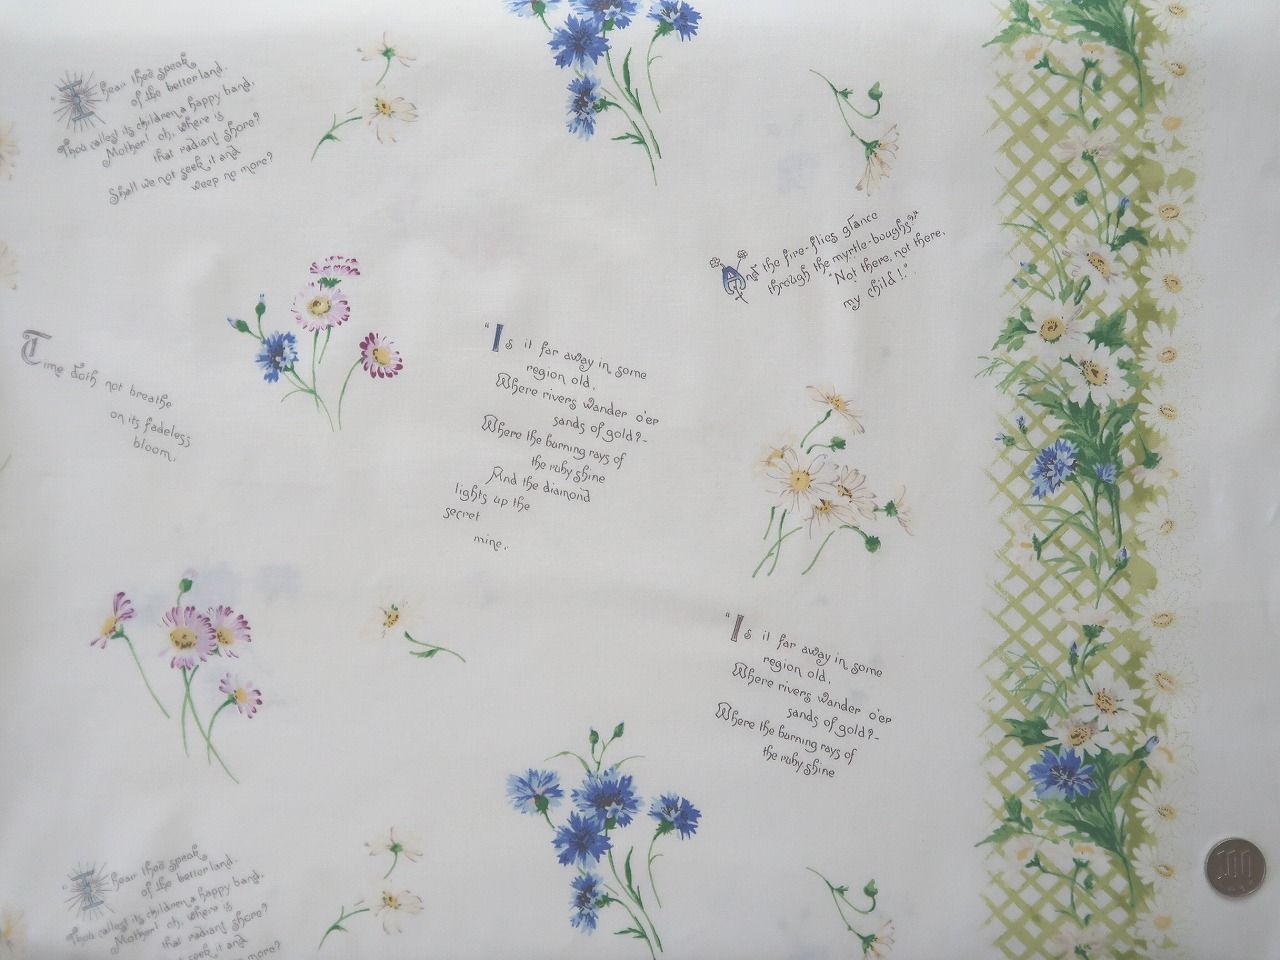 I hear thee speak
of the better land.
Thou callest its children a happy band.
Mother! oh, where is
that radiant shore?
Shall we not seek it and
weep no more?
And the fire-flies glance
through the myrtle-boughs?"
"Not there, not there,
my child!"
Time doth not breathe
on its fadeless
bloom.
"Is it far away in some
region old,
Where rivers wander o'er
sands of gold?-
Where the burning rays of
the ruby shine
And the diamond
lights up the
secret
mine.
"Is it far away in some
region old,
Where rivers wander o'er
sands of gold?-
Where the burning rays of
the ruby shine
I hear thee speak
of the better land.
Thou callest its children a happy band.
Mother! oh, where is
that radiant shore?
seek it and
no more?
100